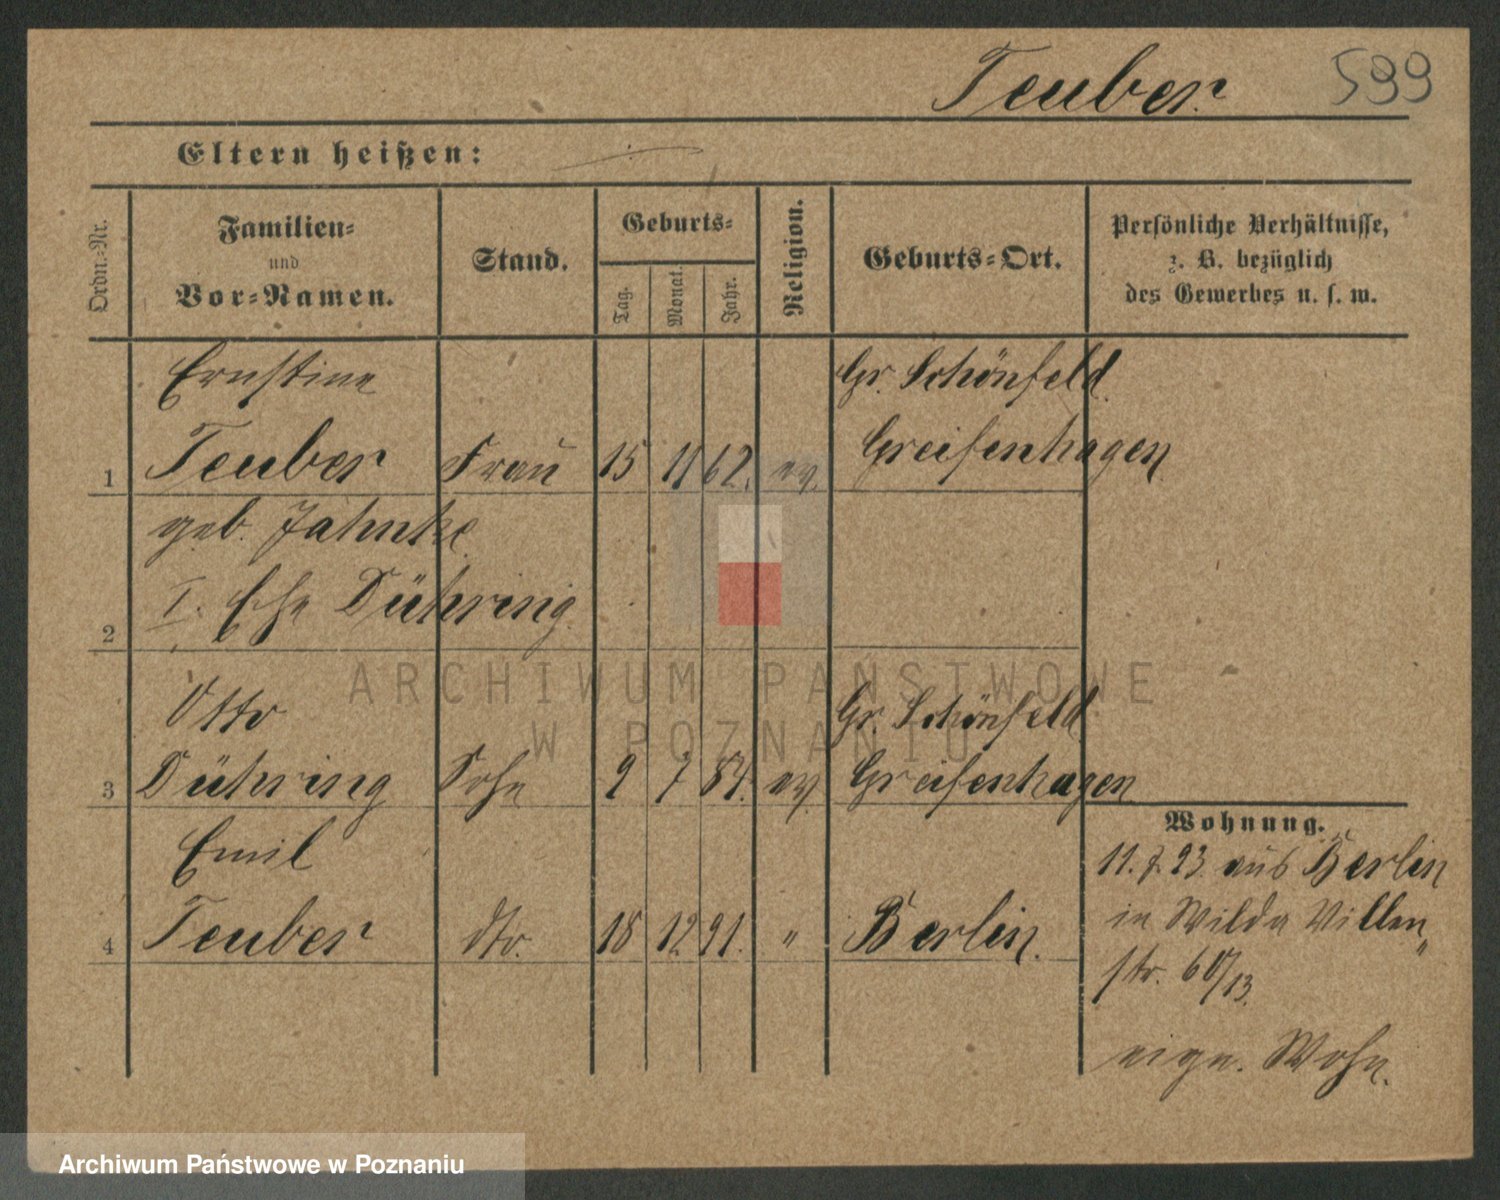 Teuber 599
Eltern heißen:
Ordn.-Nr.
Familien-
und
Vor-Namen.
Stand.
Geburts-
Tag.
Monat.
Jahr.
Religion.
Geburts-Ort.
Persönliche Verhältnisse,
z. B. bezüglich
des Gewerbes u. s. w.
Ernstine Gr. Schönfeld
1 Teuber Frau 15 11 62. ev. Greifenhagen
geb. Jahnke
2 I. Ehe Dühring
Otto Gr. Schönfeld
3 Dühring Sohn 9 7 84. ev. Greifenhagen
Wohnung.
Emil 11.7.93. aus Berlin
4 Teuber dto. 18 12 91. " Berlin.
in Wilda Villen"
str. 60/13.
eign. Wohn.
ARCHIWUM PAŃSTWOWE
W POZNANIU
Archiwum Państwowe w Poznaniu